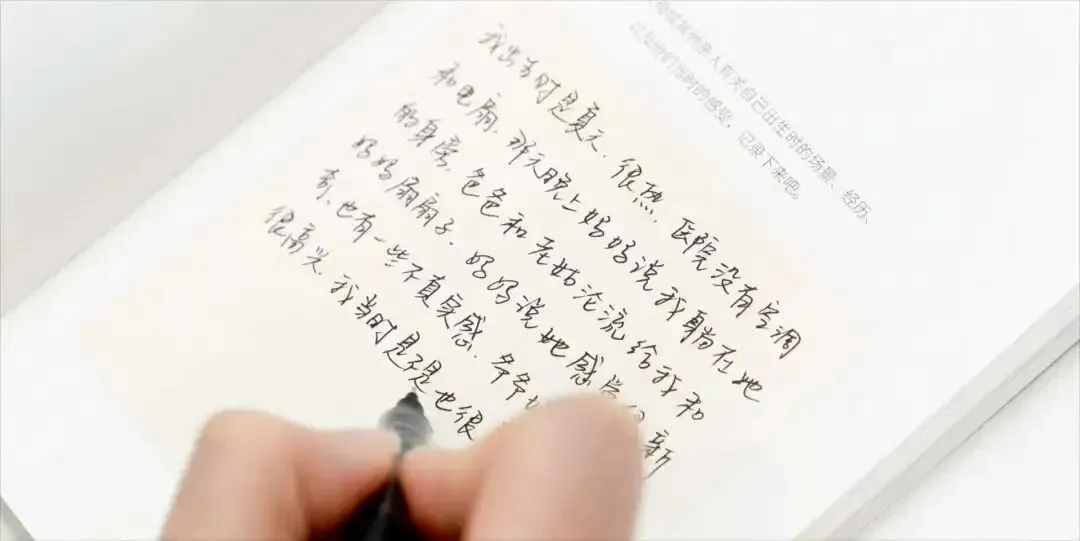 有关自己出生时的场景、经历、
当时的感受，记录下来吧。
我出生时是夏天，很热，医院没有空调
和电扇，那天晚上妈妈说我躺在她
的身旁，爸爸和老姑沦流给我和
妈妈扇扇子，妈妈说她感觉很新
奇，也有一些不真实感，爷爷
很高兴，我当时是不是也很